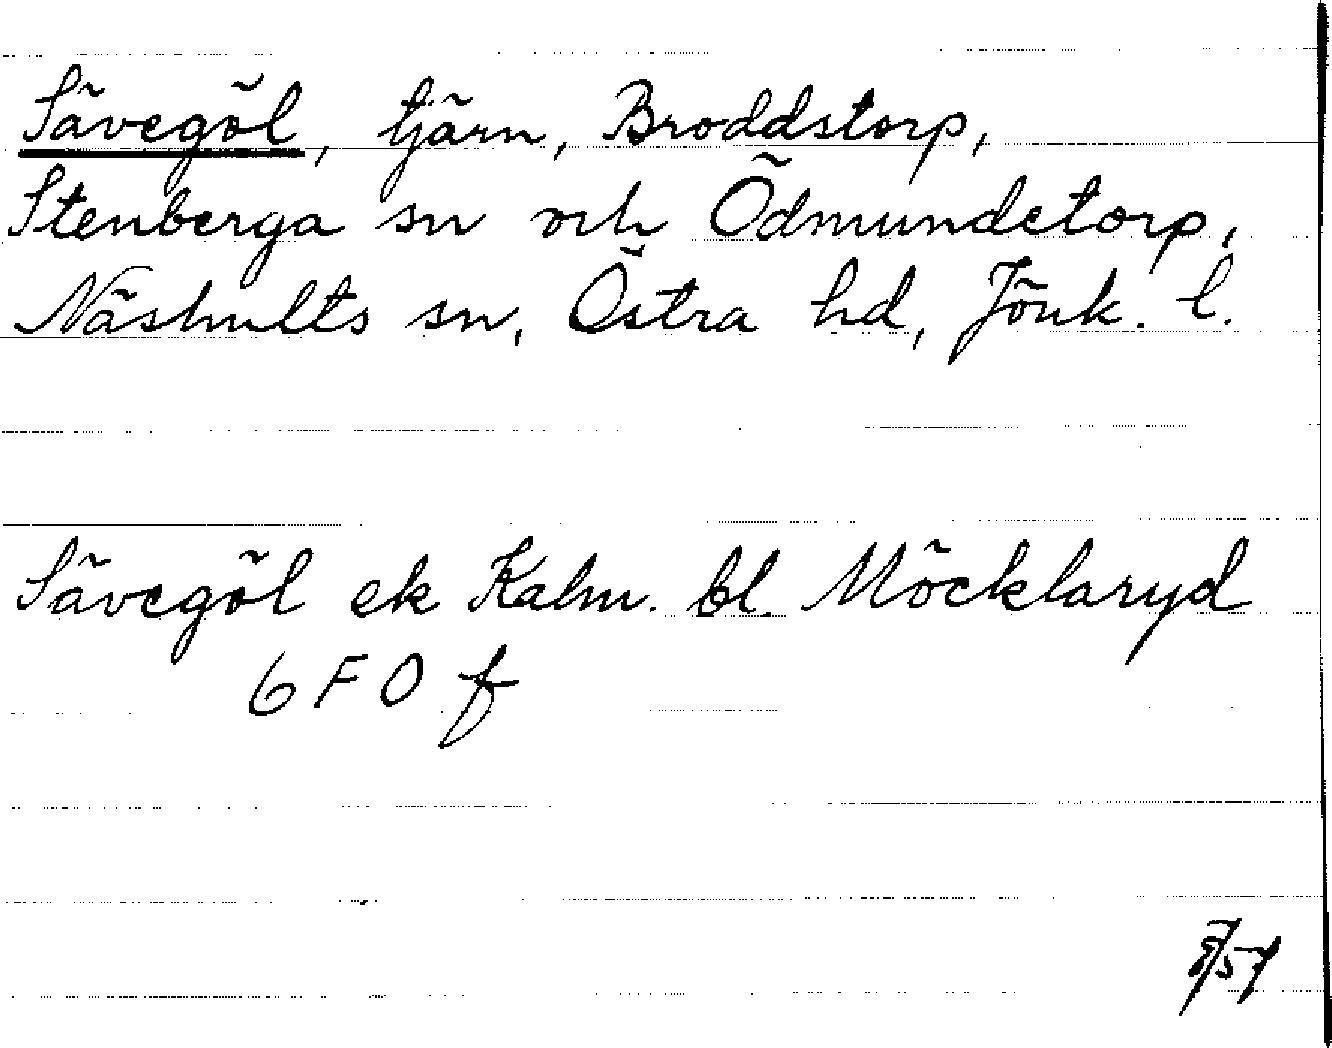 Sävegöl, tjärn, Broddstorp,
Stenberga sn och Ödmundetorp,
Näshults sn, Östra hd, Jönk. l.
Sävegöl ek Kalm. bl. Möcklaryd
6 F 0 f